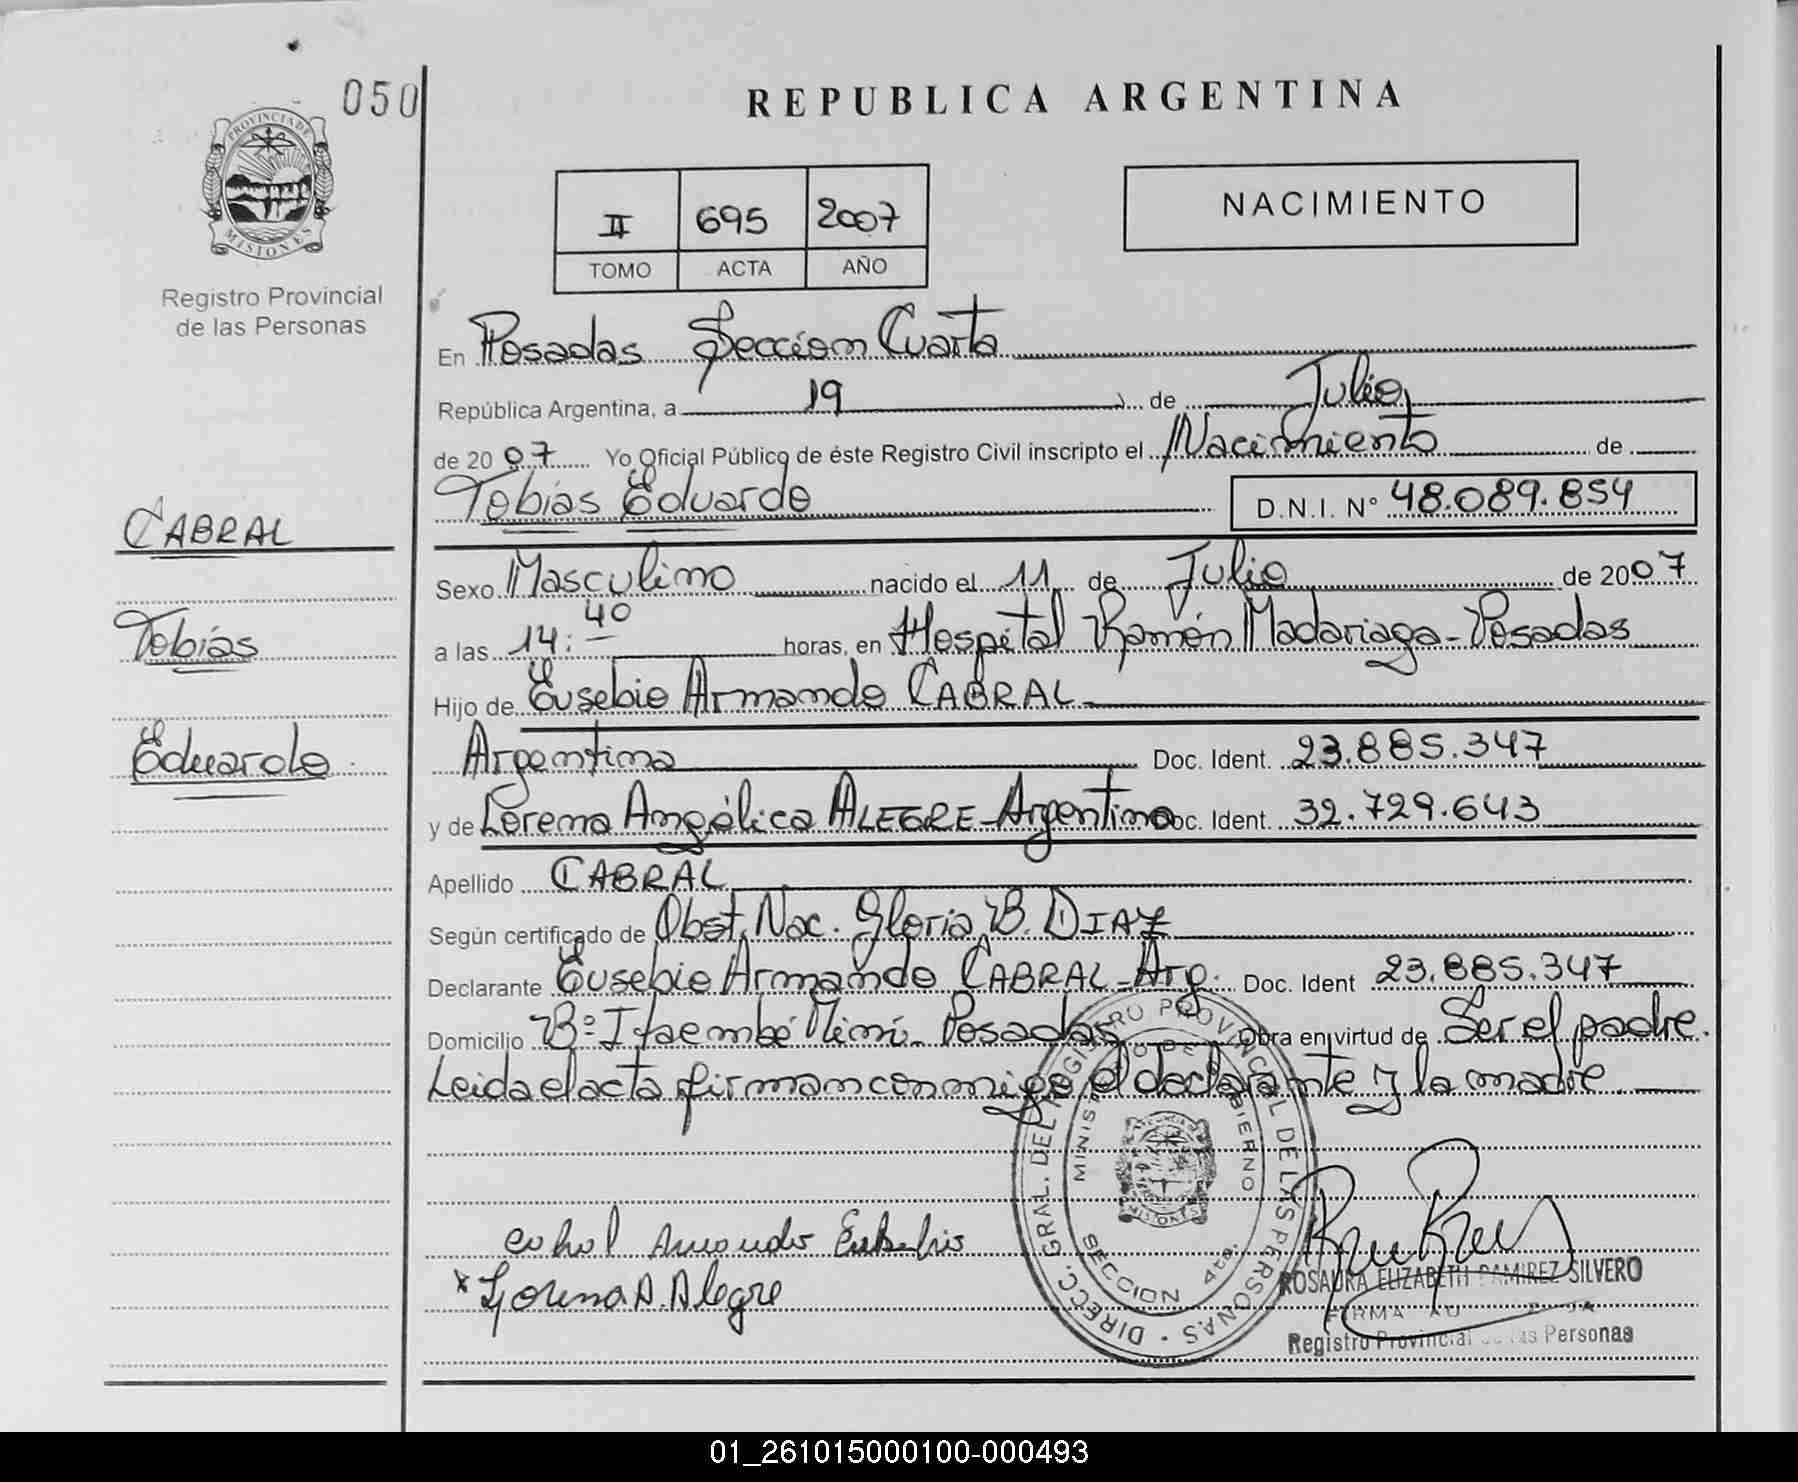 050
REPUBLICA ARGENTINA
PROVINCIA DE
MISIONES
Registro Provincial
de las Personas
II 695 2007
TOMO ACTA AÑO
NACIMIENTO
En Posadas Sección Cuarta
República Argentina, a 19 de Julio
de 2007 Yo Oficial Público de éste Registro Civil inscripto el Nacimiento de
Tobías Eduardo D.N.I. Nº 48.089.854
CABRAL
Tobías
Eduardo
Sexo Masculino nacido el 11 de Julio de 2007
a las 14:40 horas, en Hospital Ramón Madariaga - Posadas
Hijo de Eusebio Armando CABRAL
Argentina Doc. Ident. 23.885.347
y de Lorena Angélica ALEGRE - Argentina Doc. Ident. 32.729.643
Apellido CABRAL
Según certificado de Obst. Nac. Gloria B. DIAZ
Declarante Eusebio Armando CABRAL - Arg. Doc. Ident 23.885.347
Domicilio Bº Itaembé Miní - Posadas Obra en virtud de Ser el padre.
Leida el acta firman conmigo el declarante y la madre
DIRECC. GRAL. DEL REGISTRO PROVINCIAL DE LAS PERSONAS
MINISTERIO DE GOBIERNO
MISIONES
SECCION 4ta.
Armando Eusebio
* Lorena A. Alegre
ROSAURA ELIZABETH RAMIREZ SILVERO
FIRMA
Registro Provincial de las Personas
01_261015000100-000493